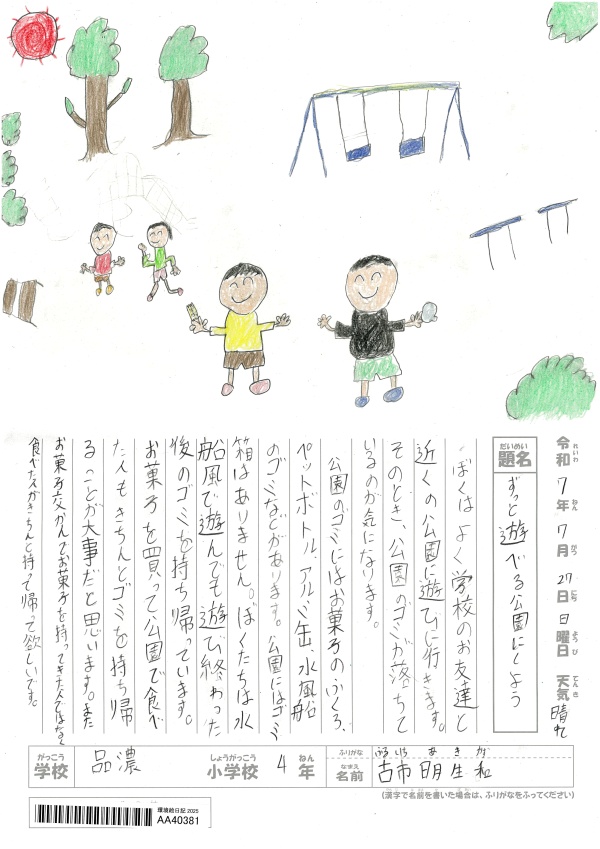 令和7年7月27日日曜日 天気 晴れ
れいわ ねん がつ にち ようび てんき
だいめい
題名 ずっと遊べる公園にしよう
ぼくはよく学校のお友達と
近くの公園に遊びに行きます。
そのとき、公園のゴミが落ちて
いるのが気になります。
公園のゴミにはお菓子のふくろ、
ペットボトル、アルミ缶、水風船
のゴミなどがあります。公園にはゴミ
箱はありません。ぼくたちは水
船風で遊んでも遊び終わった
後のゴミを持ち帰っています。
お菓子を買って公園で食べ
た人もきちんとゴミを持ち帰
ることが大事だと思います。また
お菓子交かんでお菓子を持ってきた人ではなく
食べた人がきちんと持って帰って欲しいです。
がっこう しょうがっこう ねん
学校 品濃 小学校 4年
ふりがな ふるいち あきかず
なまえ
名前 古市 明生和
(漢字で名前を書いた場合は、ふりがなをふってください)
環境絵日記 2025
AA40381